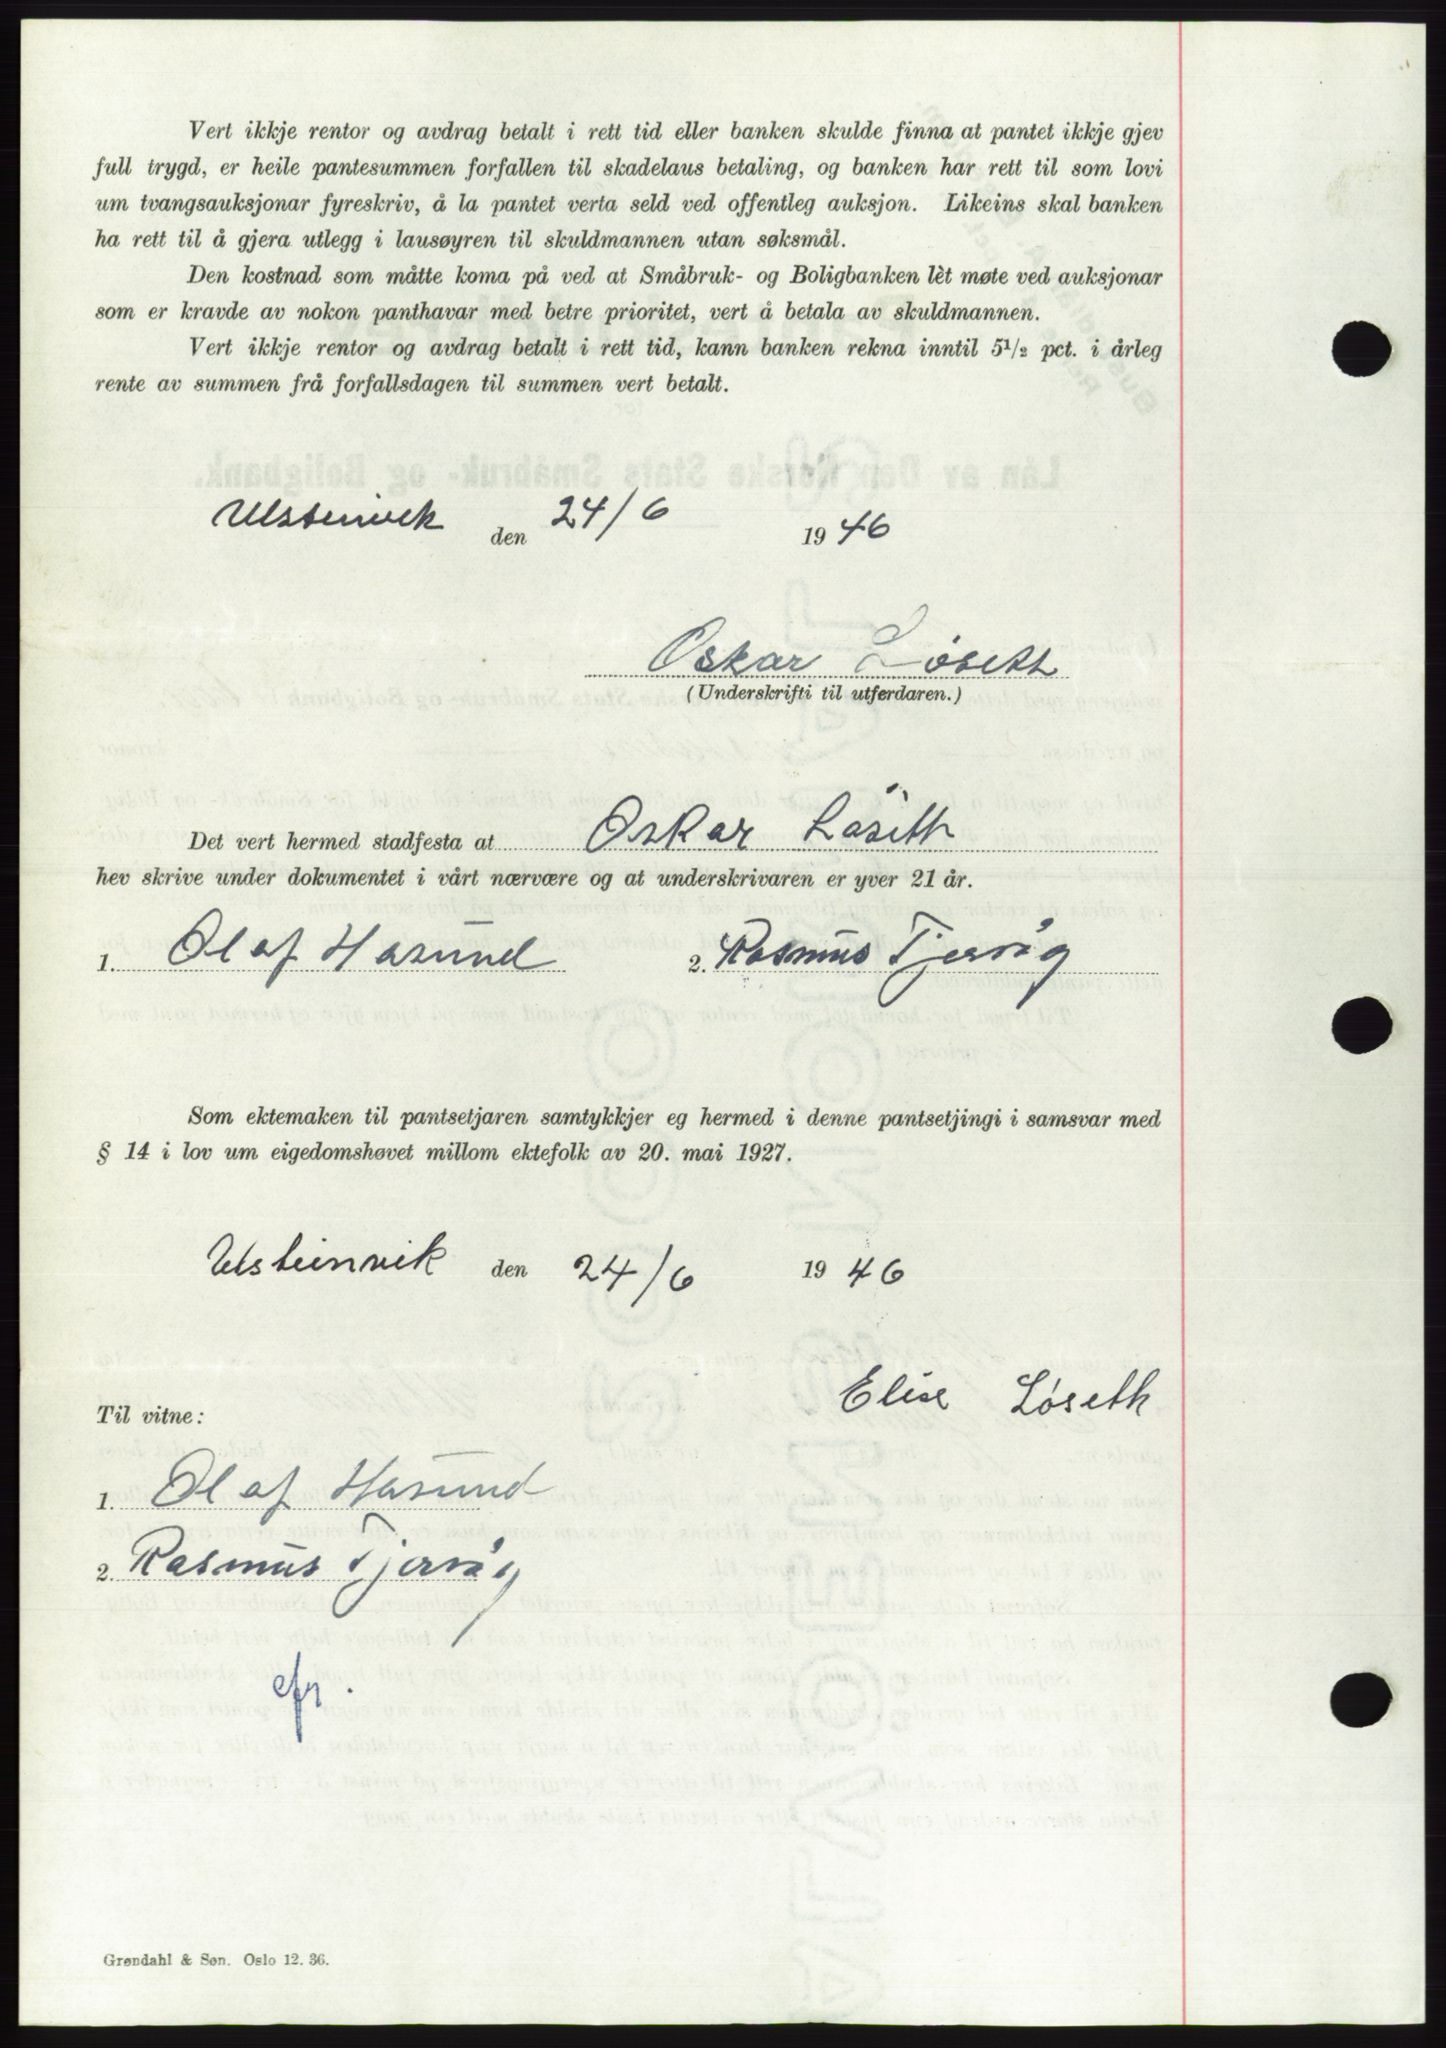 Vert ikkje rentor og avdrag betalt i rett tid eller banken skulde finna at pantet ikkje gjev
full trygd, er heile pantesummen forfallen til skadelaus betaling, og banken har rett til som lovi
um tvangsauksjonar fyreskriv, å la pantet verta seld ved offentleg auksjon. Likeins skal banken
ha rett til å gjera utlegg i lausøyren til skuldmannen utan søksmål.
Den kostnad som måtte koma på ved at Småbruk- og Boligbanken lèt møte ved auksjonar
som er kravde av nokon panthavar med betre prioritet, vert å betala av skuldmannen.
Vert ikkje rentor og avdrag betalt i rett tid, kann banken rekna inntil 5½ pct. i årleg
rente av summen frå forfallsdagen til summen vert betalt.
Ulsteinvik den 24/6 1946
Oskar Løseth
(Underskrifti til utferdaren.)
Det vert hermed stadfesta at Oskar Løseth
hev skrive under dokumentet i vårt nærvære og at underskrivaren er yver 21 år.
1. Olaf Hasund 2. Rasmus Tjervåg
Som ektemaken til pantsetjaren samtykkjer eg hermed i denne pantsetjingi i samsvar med
§ 14 i lov um eigedomshøvet millom ektefolk av 20. mai 1927.
Ulsteinvik den 24/6 1946
Elise Løseth
Til vitne:
1. Olaf Hasund
2. Rasmus Tjervåg
Grøndahl & Søn. Oslo 12. 36.